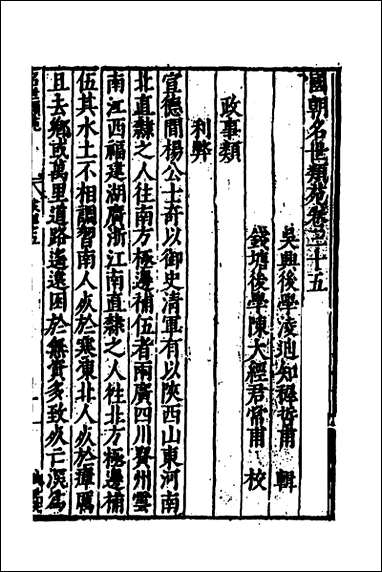 國朝名世類苑卷三十五
吳興後學凌迪知稺哲甫 輯
錢塘後學陳大經君常甫 校
政事類
利弊
宣德間楊公士奇以御史清軍有以陝西山東河南
北直隷之人往南方極邊補伍者兩廣四川貴州雲
南江西福建湖廣浙江南直隷之人徃北方極邊補
伍其水土不相調習南人㱛於寒凍北人㱛於瘴癘
且去鄉或萬里道路遥逺困於無貲多致㱛亡深爲